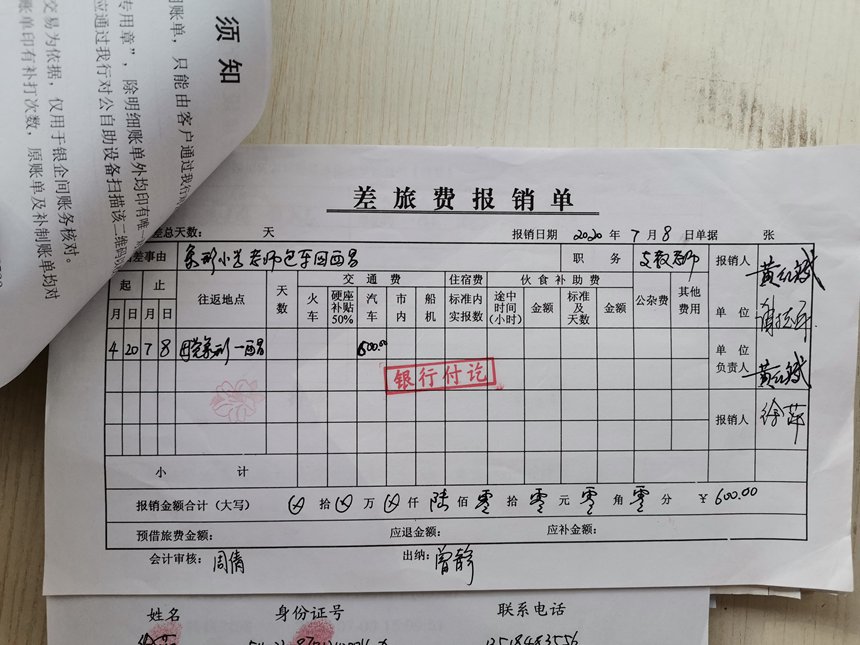 须知
账单，只能由客户通过我行
专用章”，除明细账单外均印有唯一
应通过我行对公自助设备扫描该二维码
交易为依据，仅用于银企间账务核对。
账单印有补打次数，原账单及补制账单均对
差旅费报销单
差总天数： 天 报销日期 2020 年 7 月 8 日单据 张
差事由 小学老师包车回西昌 职务 支教老师 报销人
起 止 往返地点 天数 交通费 住宿费 伙食补助费 公杂费 其他费用
月 日 月 日 火车 硬座补贴50% 汽车 市内 船机 标准内实报数 途中时间(小时) 金额 标准及天数 金额 单位
4 20 7 8 一西昌 600.00 单位负责人
银行付讫
报销人 徐萍
小计
报销金额合计（大写） 拾 万 仟 陆 佰 零 拾 零 元 零 角 零 分 ￥600.00
预借旅费金额： 应退金额： 应补金额：
会计审核：周倩 出纳：曾静
姓名 身份证号 联系电话